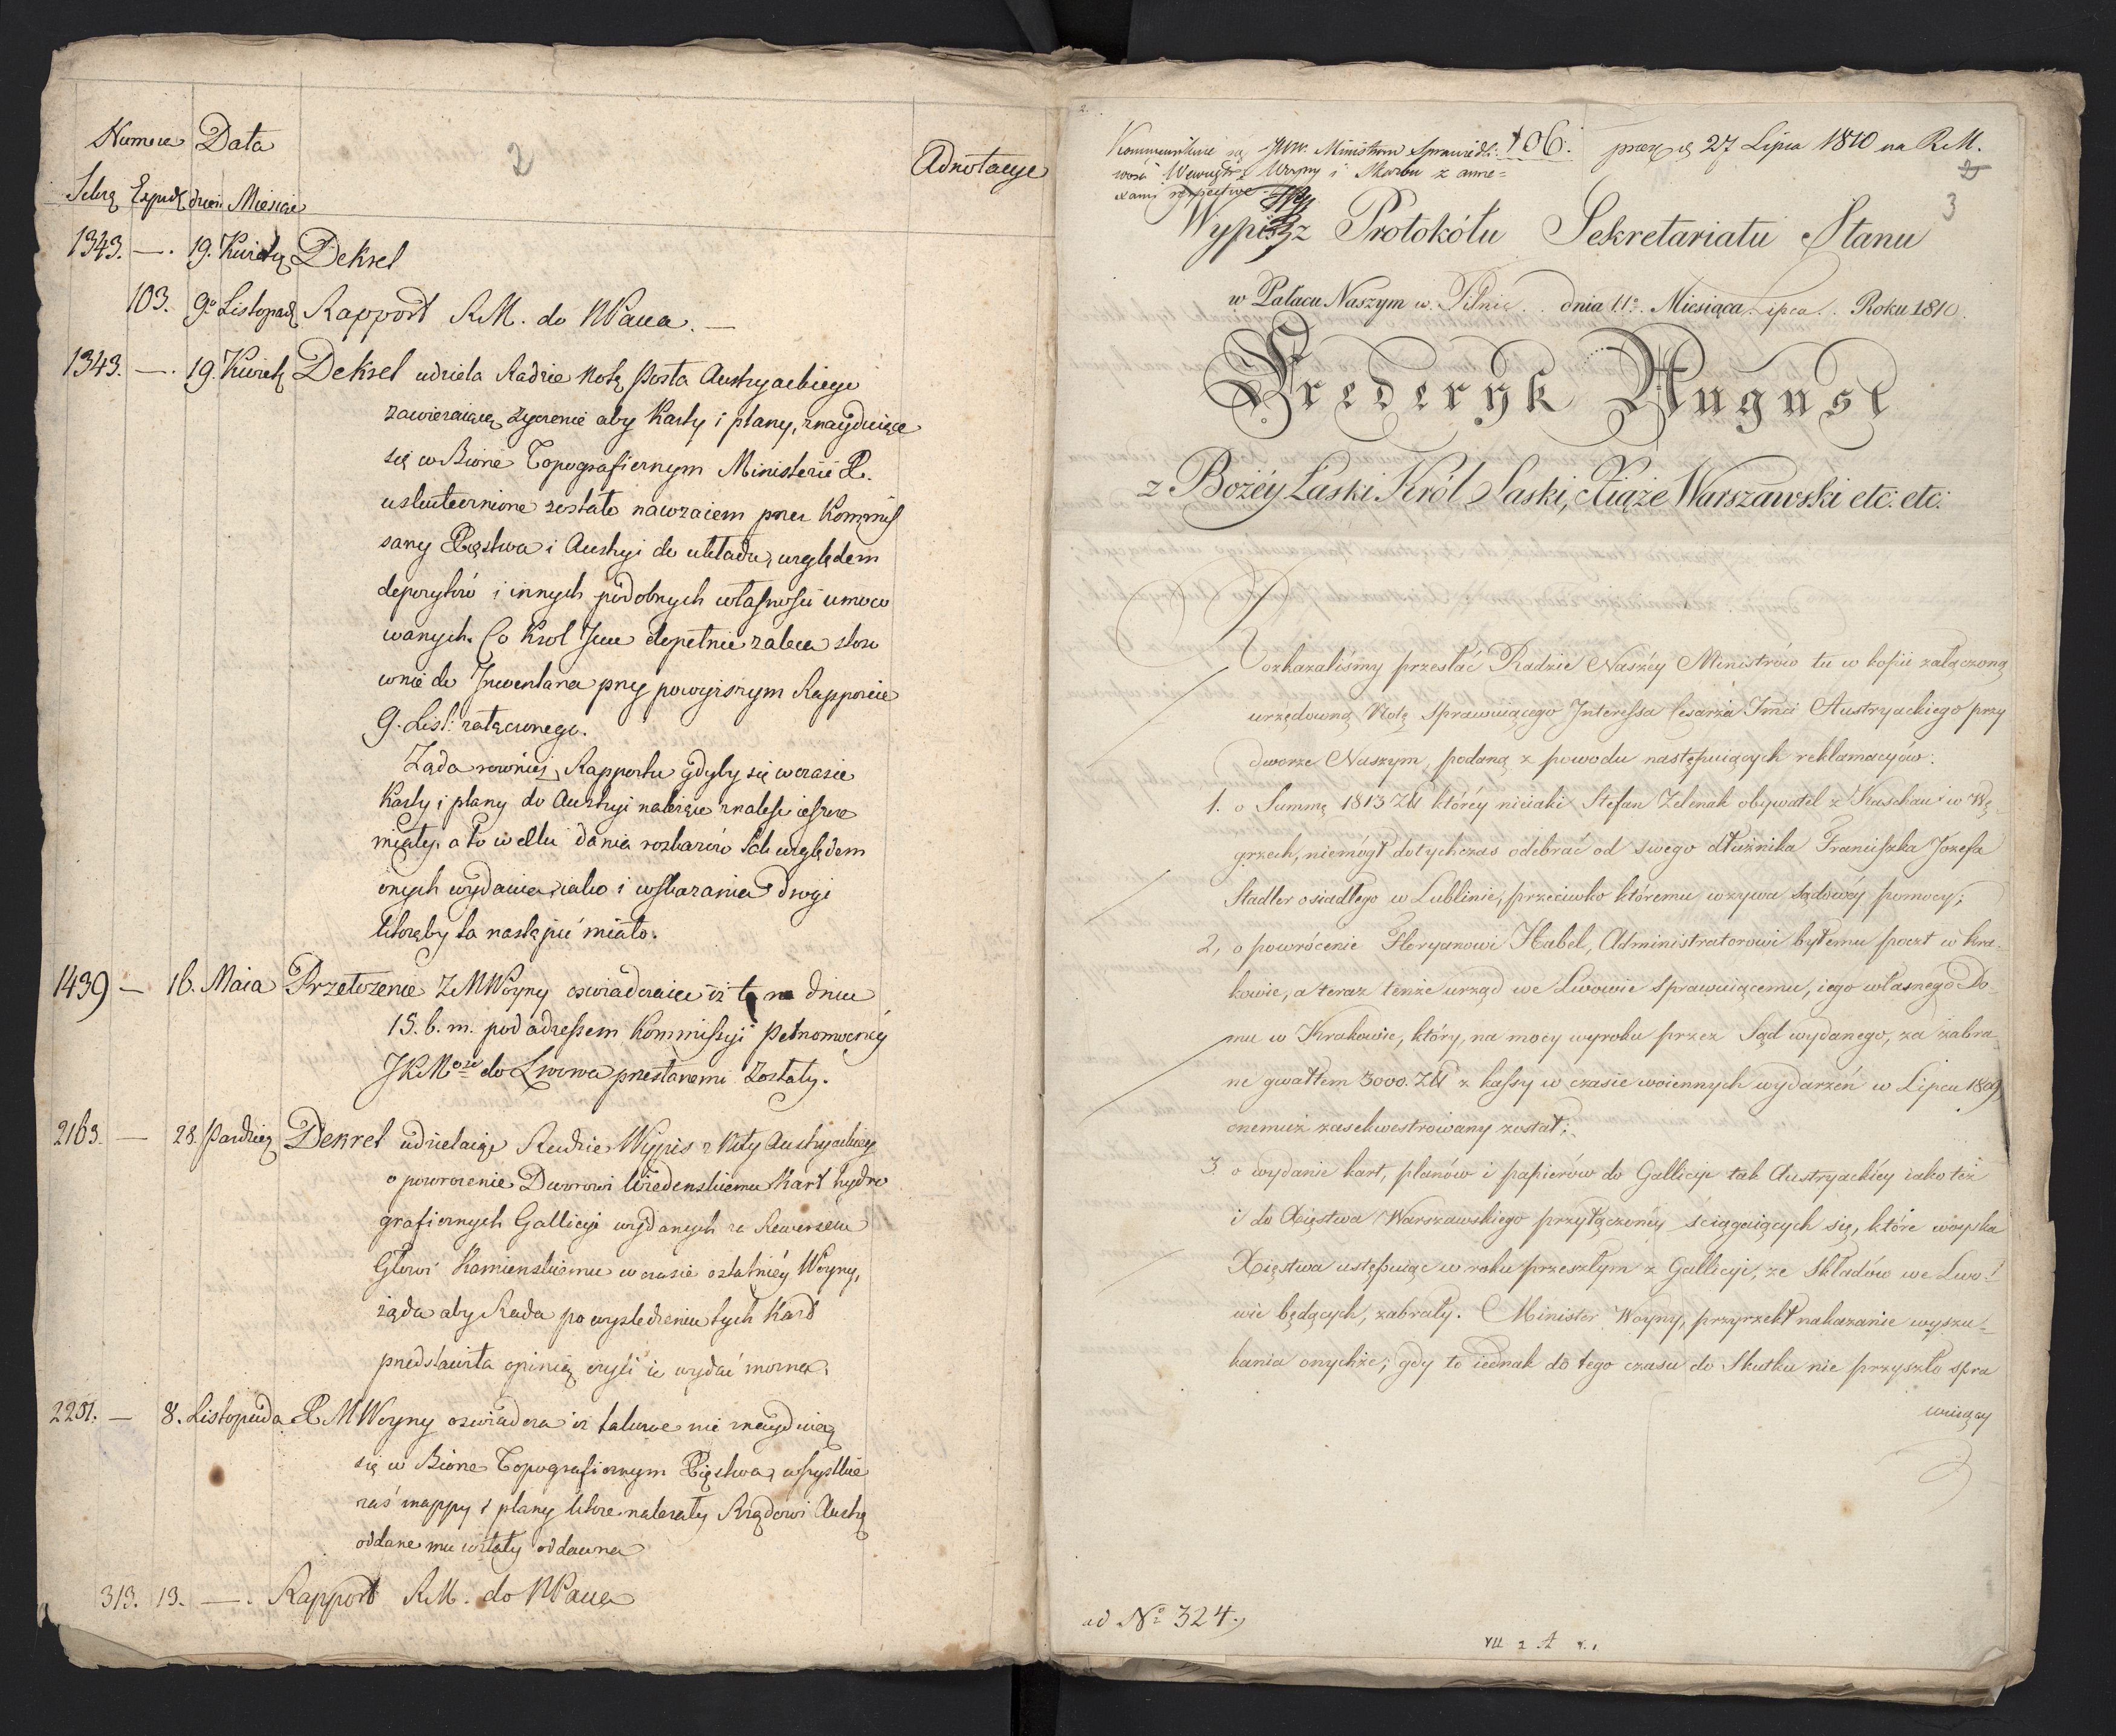 Numera Data
2
Adnotacye
Sekrę Expedę dzień Miesiąc
1343. — . 19. Kwietę Dekret
103. 9o Listopadę Rapport RM. do NPana. —
1343. — . 19. Kwietę Dekret udziela Radzie Notę Posła Austryackiego
zawieraiącą życzenie aby Karty i plany, znayduiące
się w Biorze Topograficznym Ministerii X.
uskutecznione zostało nawzaiem przez Kommis
sarzy Xięstwa i Austryi do układu względem
depozytów i innych podobnych własności umoco
wanych. Co Krol Jmc dopełnić zaleca stoso
wnie do Inwentarza przy powyższym Rapporcie
9. List: załączonego.
Żąda rownież Rapportu gdyby się w czasie
Karty i plany do Austryi należące znaleść ieszcze
miały, a to w celu dania rozkazów Tak względem
onych wydania, iako i wskazania drogi
którąby to nastąpić miało.
1439 — 16. Maia Przełożenie ZMWoyny oswiadczaiące iż te na dniu
15. b. m. pod adressem Kommissyi Pełnomocney
JKMości do Lwowa przesłanemi Zostały.
2163. — 28. Pazdzierę Dekret udzielaiąc Radzie Wypis z Noty Austryackiey
o powrocenie Dworowi Wiedenskiemu Kart hydro
graficznych Gallicyi wydanych za Rewersem
Głowi Kamienskiemu w czasie ostatniéy Woyny,
żąda aby Rada po wysledzeniu tych Kart
przedstawiła opinią czyli ie wydać można.
2251. — 8. Listopada X M Woyny oswiadcza iż takowe nie znayduią
się w Biorze Topograficznym Xięstwa, wszystkie
zaś mappy i plany które należały Rządowi Austrę
oddane mu zostały oddawna
313. 13. — . Rapport RM. do NPana
2.
Kommunikuie się JWW. Ministrom Sprawiedli:
106.
praes d 27 Lipca 1810 na R. M.
wości Wewnętrz Woyny i Skarbu z anne=
xami respective
3
Wypis z Protokółu Sekretariatu Stanu
w Pałacu Naszym w. Pilnic. . dnia 11o. Miesiąca Lipca . . Roku 1810.
Frederyk August
z Bożéy Łaski Król Saski, Xiąże Warszawski etc: etc:
Rozkazaliśmy przesłać Radzie Naszéy Ministrów tu w kopii załączoną
urzędowną Notę Sprawuiącego Interessa Cesarza Jmci Austryackiego przy
dworze Naszym, podaną z powodu następuiących reklamacyów:
1. o Summę 1813 ZłR któréy nieiaki Stefan Zelenak obywatel z Kaschau w Wę
grzech, niemógł dotychczas odebrać od swego dłużnika Franciszka Jozefa
Stadler osiadłego w Lublinie, przeciwko któremu wzywa sądowéy pomocy;
2, o powrócenie Floryanowi Habel, Administratorowi byłemu poczt w Kra-
kowie, a teraz tenże urząd we Lwowie sprawuiącemu, iego własnego Do-
mu w Krakowie, który, na mocy wyroku przez Sąd wydanego, za zabra
ne gwałtem 3000. ZłR z kassy w czasie woiennych wydarzeń w Lipcu 1809
onemuż zasekwestrowany został;
3. o wydanie kart, planów i papierów do Gallicyi tak Austryackiéy iako też
i do Xięstwa Warszawskiego przyłączonéy ściągaiących się, które woyska
Xięstwa ustępuiąc w roku przeszłym z Gallicyi, ze Składów we Lwo=
wie będących, zabrały. Minister Woyny, przyrzekł nakazanie wyszu=
kania onychże; gdy to iednak do tego czasu do Skutku nie przyszło spra
wuiący
ad No 324.
VII 2 A 8.